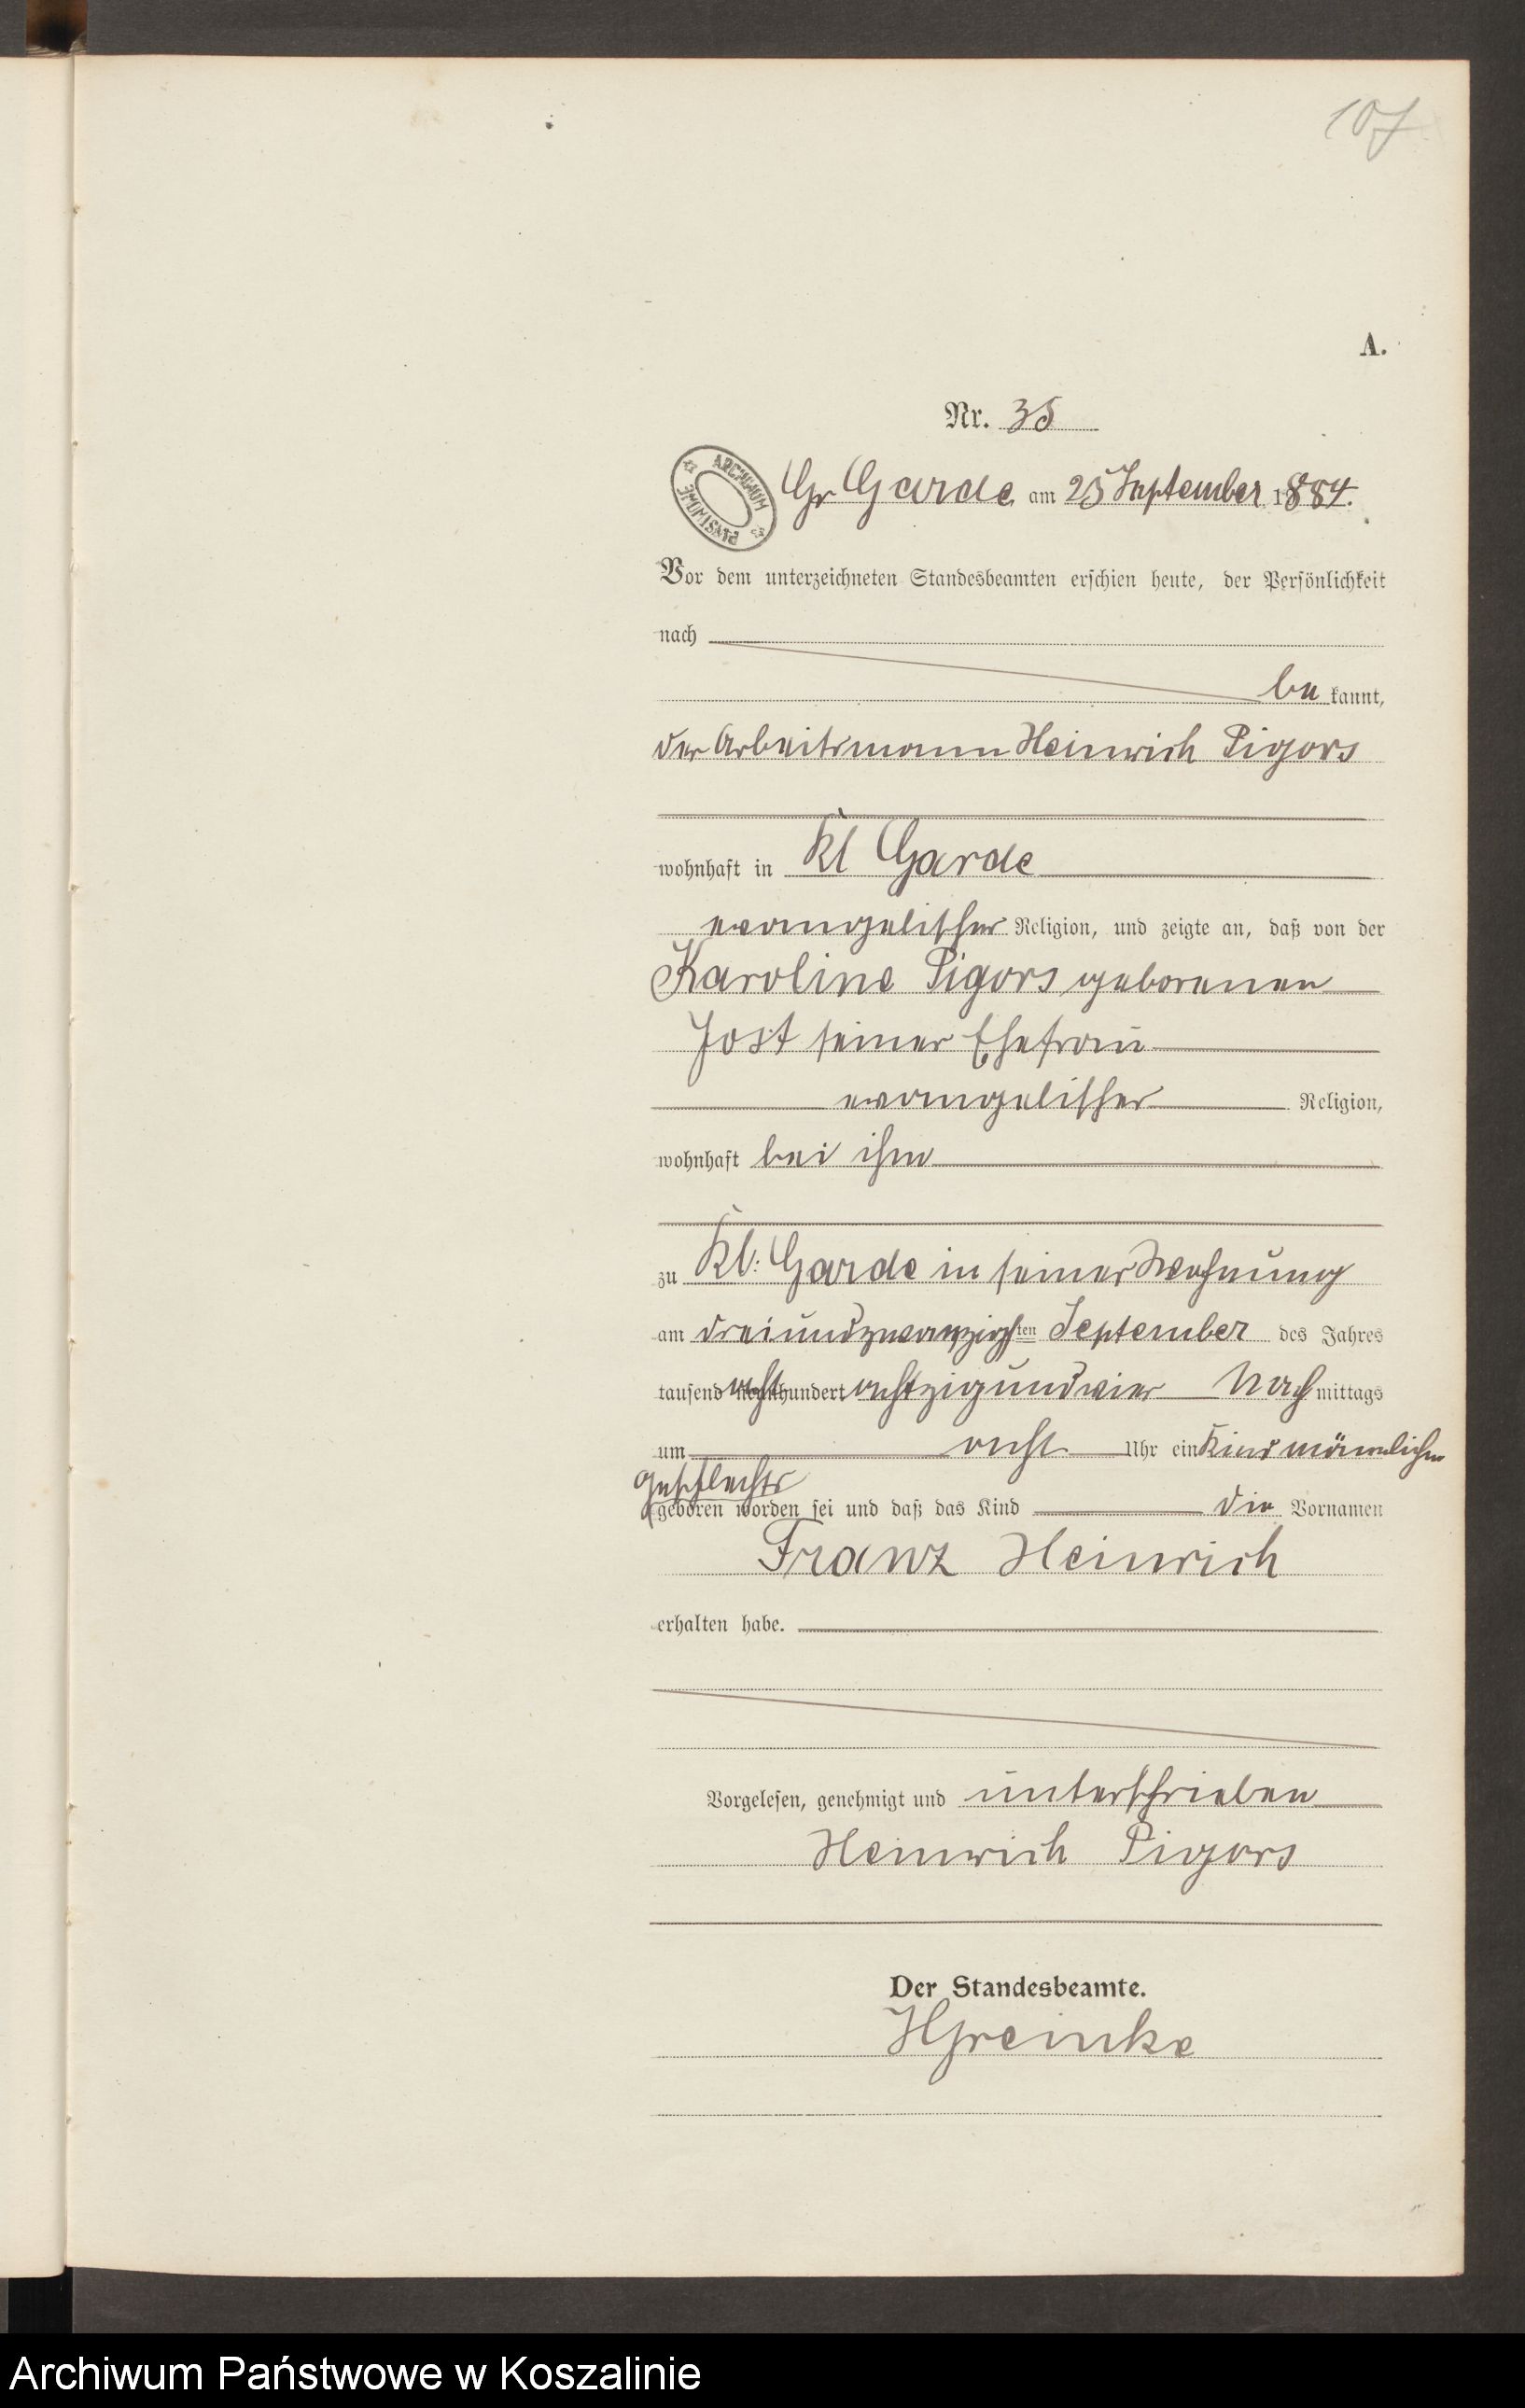 107
A.
Nr. 35
ARCHIWUM PAŃSTWOWE
Gr Garde am 25 September 1884.
Vor dem unterzeichneten Standesbeamten erschien heute, der Persönlichkeit
nach
be kannt,
der Arbeitsmann Heinrich Pigors
wohnhaft in Kl Garde
evangelischer Religion, und zeigte an, daß von der
Karoline Pigors geborenen
Jost seiner Ehefrau
evangelischer Religion,
wohnhaft bei ihm
zu Kl: Garde in seiner Wohnung
am dreiundzwanzigsten September des Jahres
tausend acht hundert achtzigundvier Nachmittags
um acht Uhr ein Kind männlichen
Geschlechts
geboren worden sei und daß das Kind die Vornamen
Franz Heinrich
erhalten habe.
Vorgelesen, genehmigt und unterschrieben
Heinrich Pigors
Der Standesbeamte.
HGreinke
Archiwum Państwowe w Koszalinie